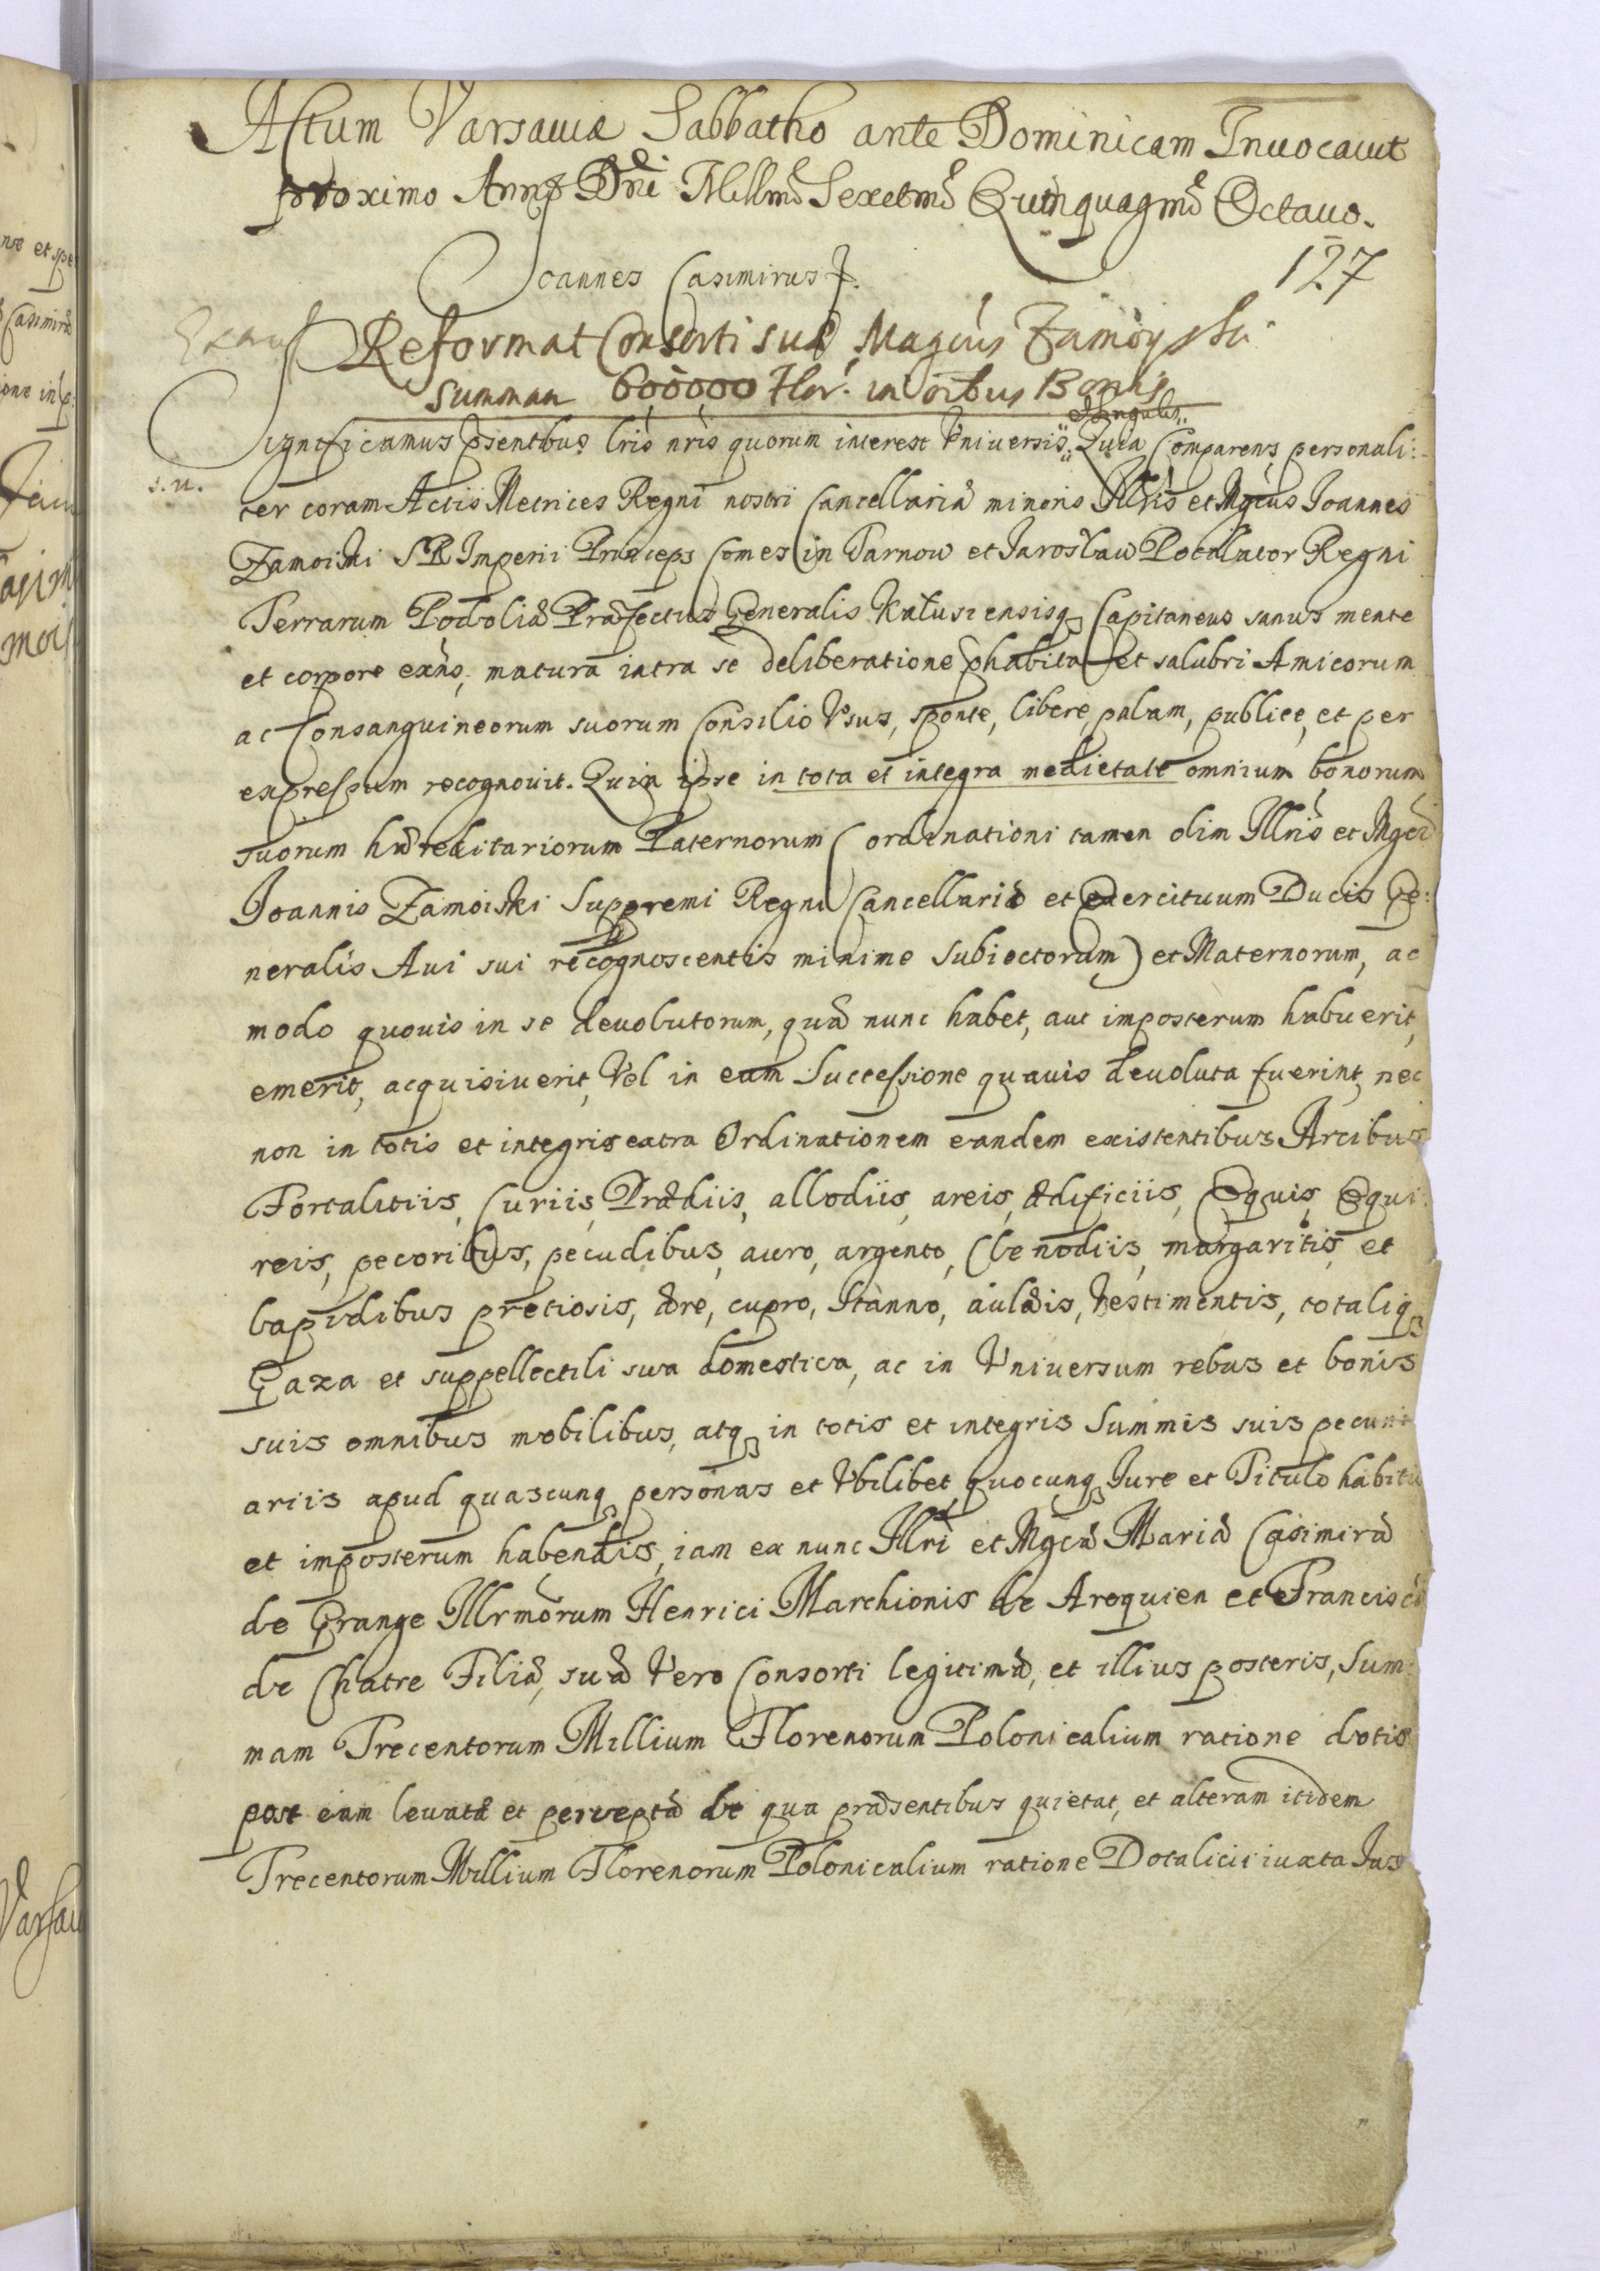 Actum Varsauiæ Sabbatho ante Dominicam Inuocauit
proximo Anno Dni Millmo Sexctmo Quinquagmo Octauo.
127
Joannes Casimirus R.
Reformat Consorti suæ Magcus Zamoyski
summam 600000 Flor. in oibus Bonis
et singulis
Significamus psentibus lris nris quorum interest Vniversis Quia Comparens personali:
s. n.
ter coram Actis Metrices Regni nostri Cancellariæ minoris Illris et Mgcus Joannes
Zamoiski S R Imperii Princeps Comes in Tarnow et Jarosław Pocillator Regni
Terrarum Podoliæ Præfectus Generalis Kałusiensisq Capitaneus sanus mente
et corpore exñs, matura intra se deliberatione phabita et salubri Amicorum
ac Consanguineorum suorum Consilio Vsus, sponte, libere, palam, publice, et per
expressum recognouit. Quia ipse in tota et integra medietate omnium bonorum
suorum hæreditariorum Paternorum (ordinationi tamen olim Illris et Mgci
Joannis Zamoiski Suppremi Regni Cancellarii et exercituum Ducis Ge:
neralis Aui sui recognoscentis minime subiectorum) et Maternorum, ac
modo quouis in se deuolutorum, quæ nunc habet, aut imposterum habuerit,
emerit, acquisiuerit, Vel in eum Successione quauis deuoluta fuerint, nec
non in totis et integris extra Ordinationem eandem existentibus Arcibus
Fortalitiis, Curiis, Prædiis, allodiis, areis, ædificiis, Equis, Equi:
reis, pecoribus, pecudibus, auro, argento, Clenodiis, margaritis, et
lapidibus pretiosis, ære, cupro, stanno, aulæis, Vestimentis, totaliq
Gaza et suppellectili sua domestica, ac in Vniversum rebus et bonis
suis omnibus mobilibus, atq in totis et integris Summis suis pecuni
ariis apud quascunq personas et Vbilibet, quocunq Jure et Titulo habitis
et imposterum habendis, iam ex nunc Illri et Mgcæ Mariæ Casimiræ
de Grange Illrmorum Henrici Marchionis de Arequien et Franciscæ
de Chatre Filiæ, suæ Vero Consorti legitimæ, et illius posteris, Sum:
mam Trecentorum Millium Florenorum Polonicalium ratione dotis
post eam leuatæ et perceptæ de qua præsentibus quietat, et alteram itidem
Trecentorum Millium Florenorum Polonicalium ratione Dotalicii iuxta Jus